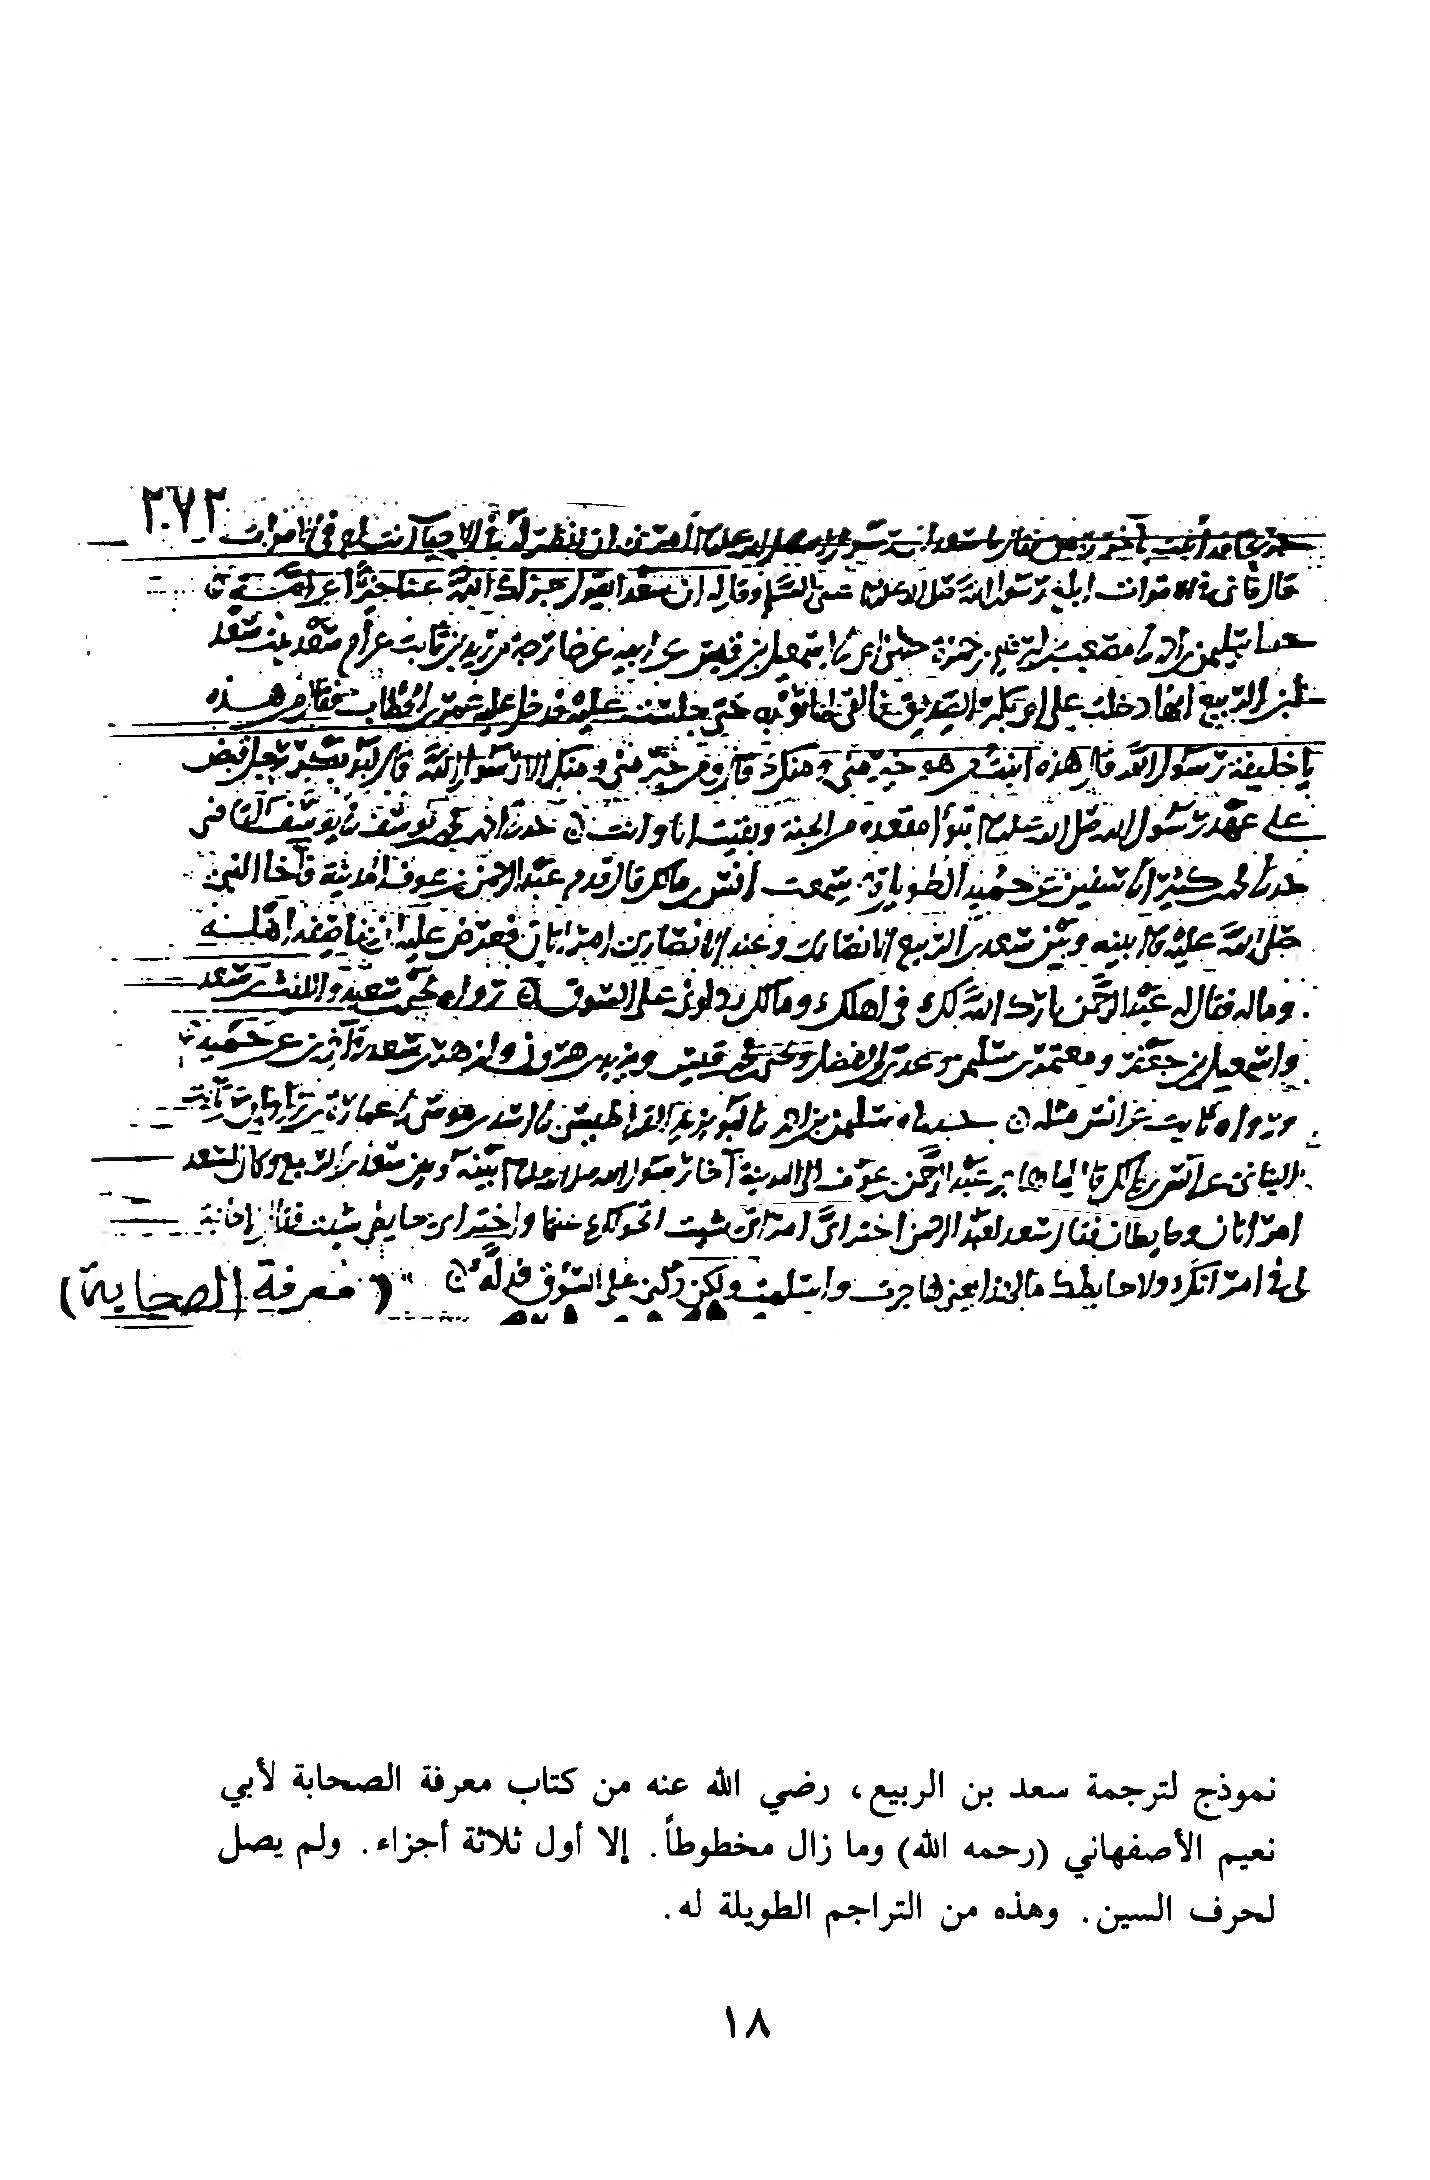 ٢٧٢
فقال يا سعد ان رسول الله صلى الله عليه امرني ان انظر أفي الاحياء انت ام في الاموات
قال فاني في الاموات ابلغ رسول الله صلى الله عليه مني السلم وقل له ان سعدا يقول جزاك الله عنا خيرا
سليمن بن احمد مصعب بن ابراهيم بن حمزة حدثني ابي اسمعيل بن قيس عن ابيه عن خارجة بن زيد بن ثابت عن ام سعد بنت سعد
بن الربيع انها دخلت على ابي بكر الصديق فالقى لها ثوبه حتى جلست عليه فدخل عليه عمر بن الخطاب فقال من هذه
يا خليفة رسول الله قال هذه ابنت من هو خير مني ومنك قال ومن خير مني ومنك الا رسول الله قال ابو بكر رجل قبض
على عهد رسول الله صلى الله عليه تبوأ مقعده من الجنة وبقيت انا وانت
محمد بن كثير سفين عن حميد الطويل سمعت انس بن مالك قال قدم عبد الرحمن بن عوف المدينة فآخا النبي
صلى الله عليه بينه وبين سعد بن الربيع الانصاري وعند الانصاري امرأتان فعرض عليه ان يناصفه اهله
وماله فقال له عبد الرحمن بارك الله لك في اهلك ومالك دلوني على السوق رواه يحيى بن سعيد والليث بن سعد
واسمعيل بن جعفر ومعتمر بن سليمن ومحمد بن قيس ويزيد بن هرون وازهر بن سعد في آخرين عن حميد
ورواه ثابت عن انس مثله سليمن بن احمد ابو يزيد القراطيسي اسد بن موسى عمارة بن زاذان ثابت
البناني عن انس بن مالك قال عبد الرحمن بن عوف الى المدينة آخا رسول الله صلى الله عليه بينه وبين سعد بن الربيع وكان لسعد
امرأتان وحايطان فقال سعد لعبد الرحمن اختر اي امرأتي شيت اتحول لك عنها واختر اي حايطي شيت فقال لا حاجة
لي في امرأتك ولا حايطك ما لهذا هاجرت واسلمت ولكن دلني على السوق فدله
(معرفة الصحابة)
نموذج لترجمة سعد بن الربيع، رضي الله عنه من كتاب معرفة الصحابة لأبي
نعيم الأصفهاني (رحمه الله) وما زال مخطوطاً. إلا أول ثلاثة أجزاء. ولم يصل
لحرف السين. وهذه من التراجم الطويلة له.
١٨